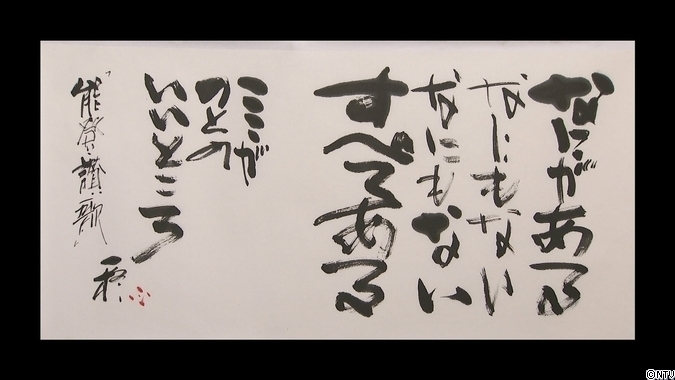 なにがある
なにもない
なにもない
すべてある
ここが
のとの
いいところ
「能登讃歌」
©NTV